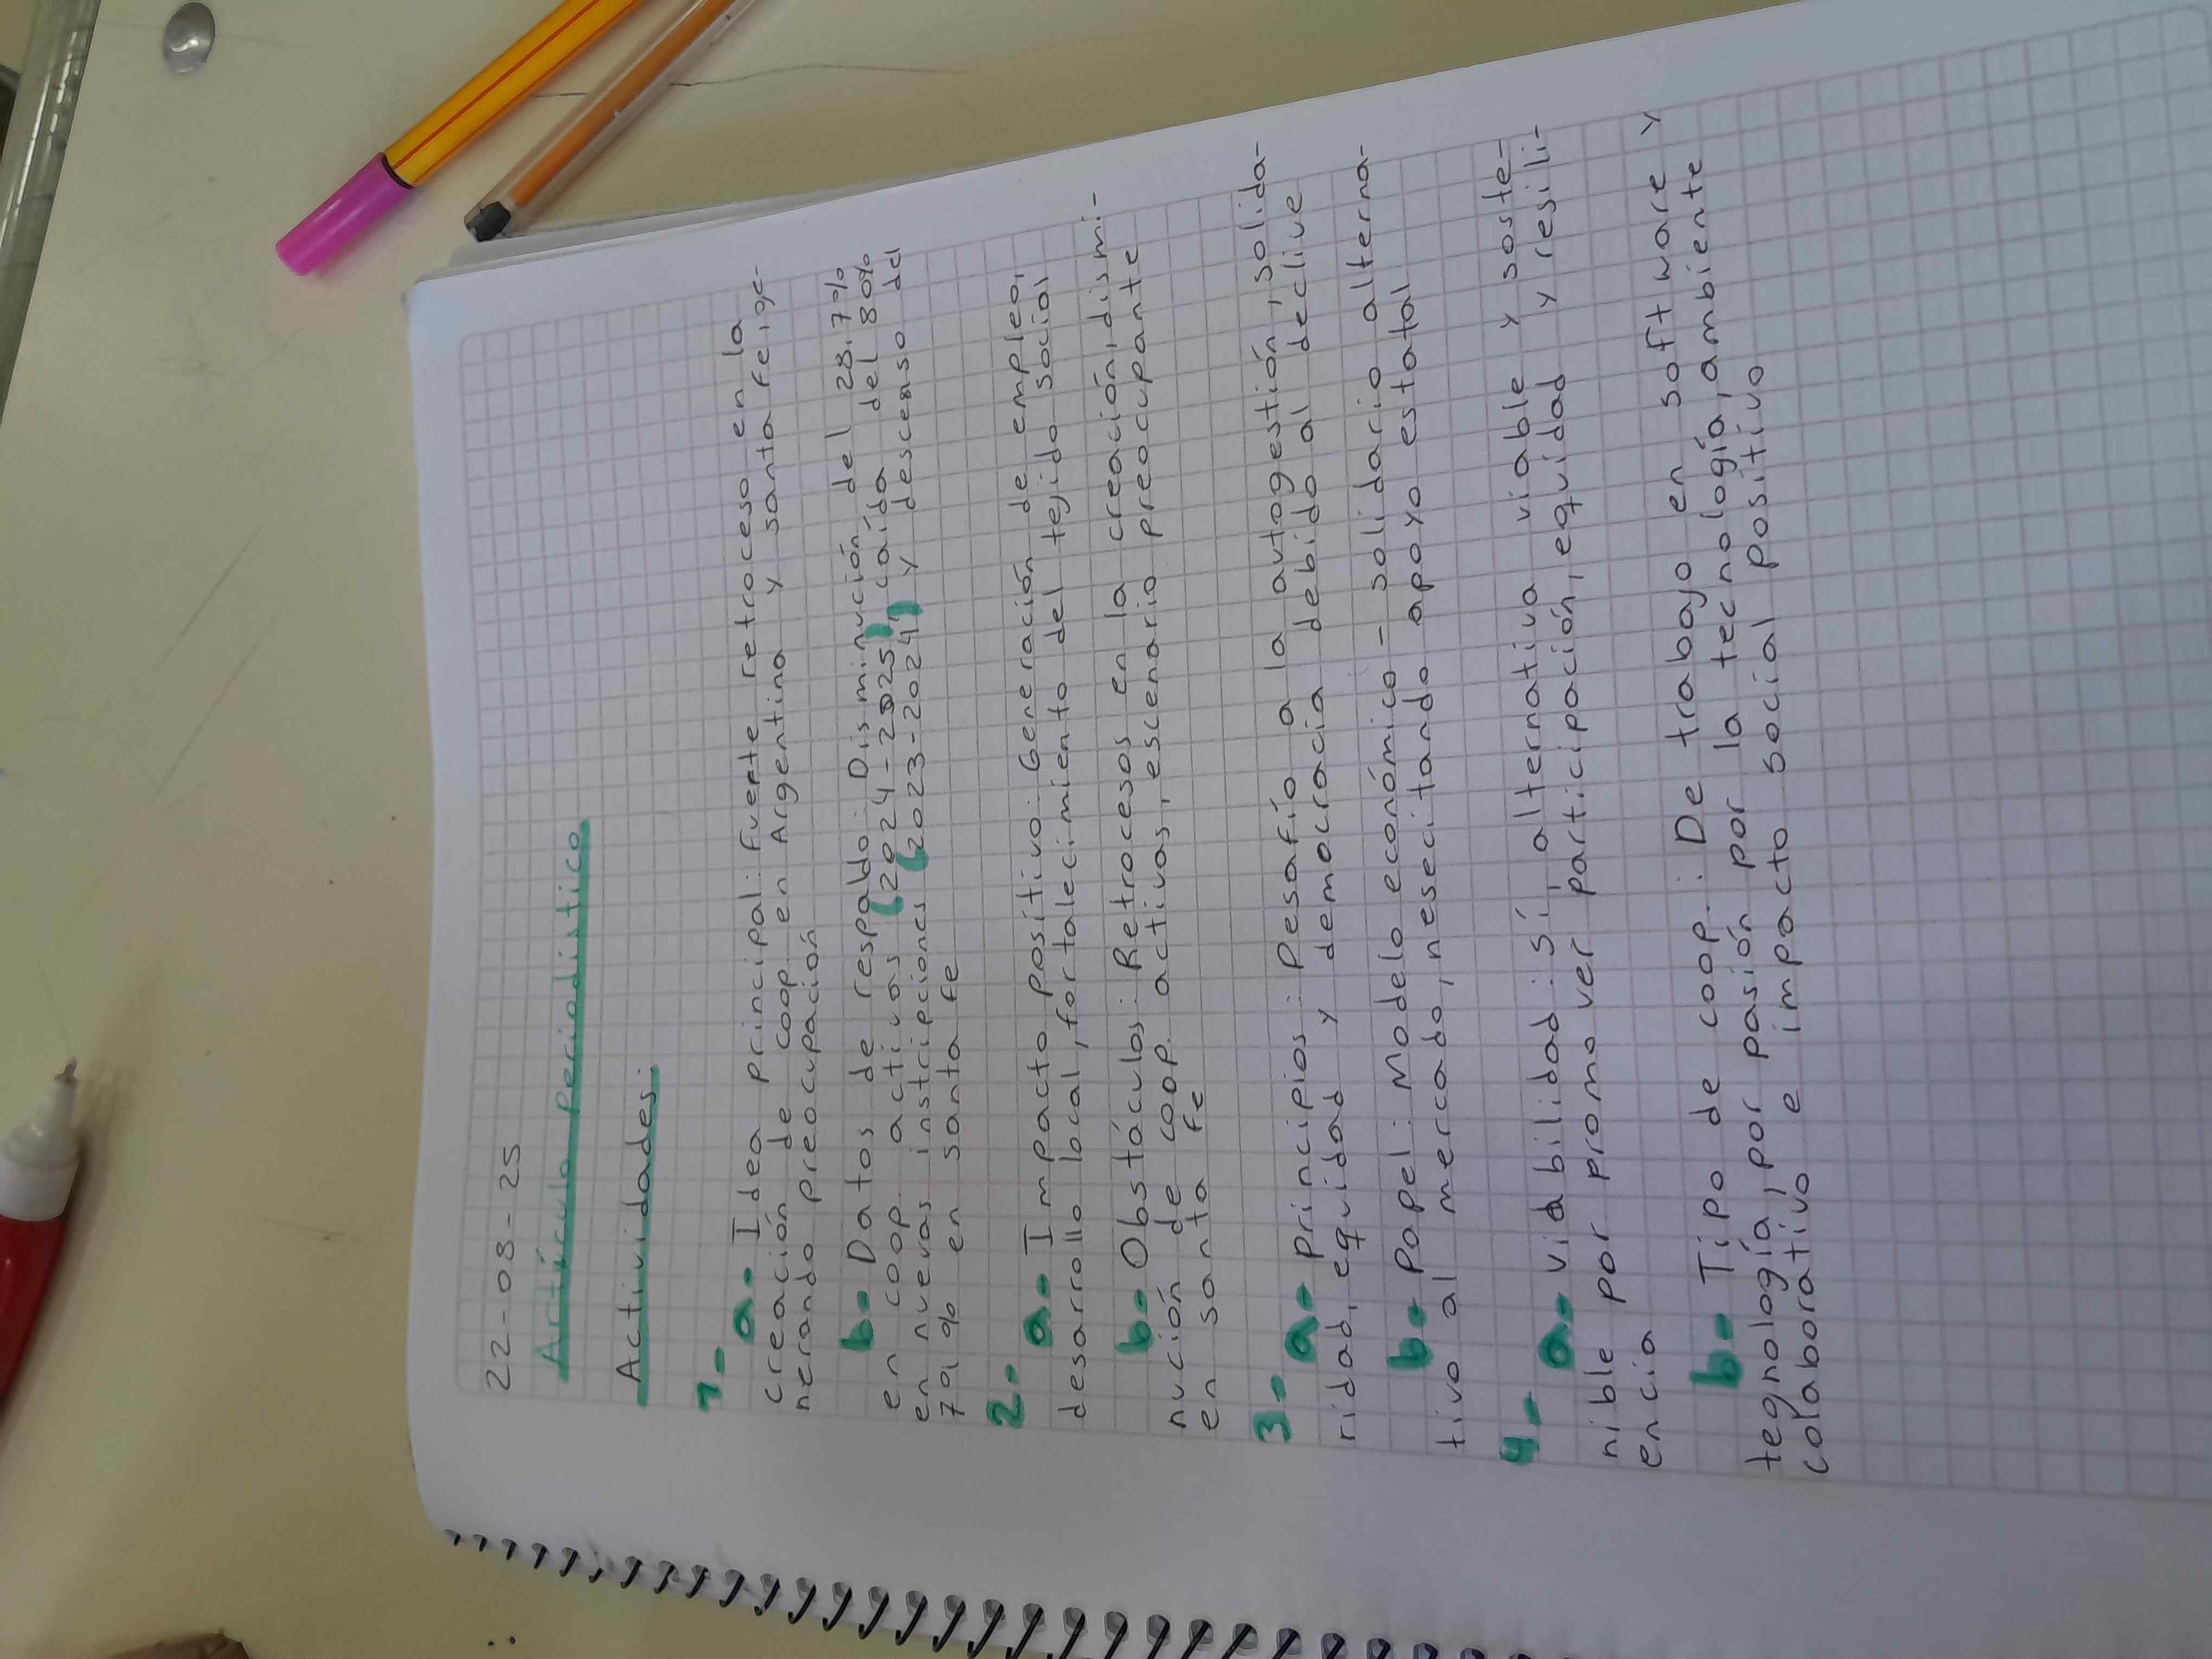 22-08-25
Artículo periodístico
Actividades:
1-
a- Idea principal: Fuerte retroceso en la
creación de coop. en Argentina y santa Fe, ge-
nerando preocupación
b- Datos de respaldo: Disminución del 28,7%
en coop. activas (2024-2025), caída del 80%
en nuevas instripciones (2023-2024) y descenso del
70,% en santa fe
2-
a- Impacto positivo: Generación de empleo,
desarrollo local, fortalecimiento del tejido social
b- Obstáculos: Retrocesos en la creación, dismi-
nución de coop. activas, escenario preocupante
en santa fe
3-
a- principios: Desafío a la autogestión, solida-
ridad, equidad y democracia debido al declive
b- Papel: Modelo económico - solidario alterna-
tivo al mercado, nesecitando apoyo estatal
4-
a- viabilidad: sí, alternativa viable y soste-
nible por promover participación, equidad y resili-
encia
b- Tipo de coop.: De trabajo en software y
tegnología, por pasión por la tecnología, ambiente
colaborativo e impacto social positivo